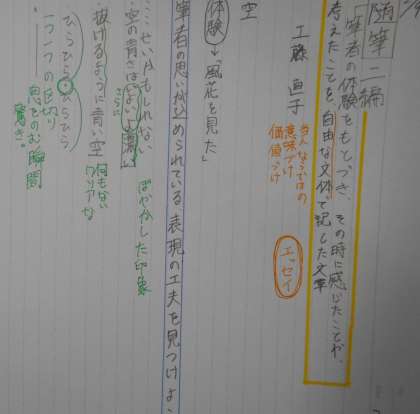 随筆二編
筆者の体験をもとづき、その時に感じたことや、
考えたことを、自由な文体で記した文章
本人ならではの
意味づけ
価値づけ
エッセイ
工藤 直子
空
体験→「風花を見た」
筆者の思いが込められている表現の工夫を見つけよ
……せいかもしれない
ぼやかした印象
空の青さはいよいよ濃い
さらに
抜けるように青い空
何もない
クリアな
ひらひら ひらひら
一つ一つの区切り
息をのむ瞬間
驚き。